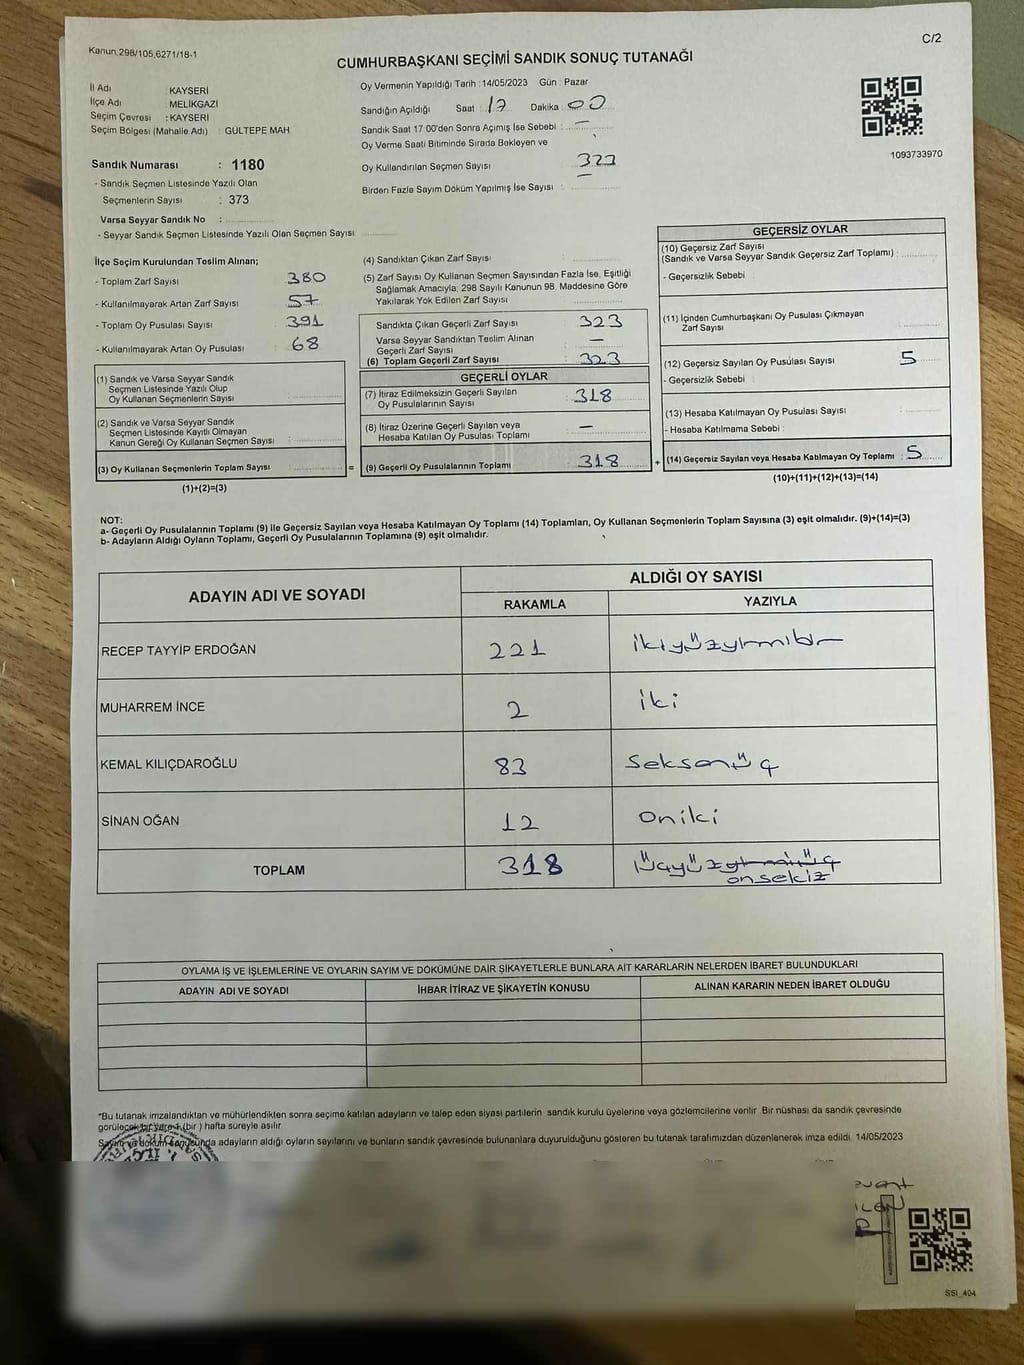 Kanun 298/105,6271/18-1
C/2
CUMHURBAŞKANI SEÇİMİ SANDIK SONUÇ TUTANAĞI
İl Adı KAYSERİ
İlçe Adı MELİKGAZİ
Seçim Çevresi : KAYSERİ
Seçim Bölgesi (Mahalle Adı) : GÜLTEPE MAH
Sandık Numarası : 1180
- Sandık Seçmen Listesinde Yazılı Olan
Seçmenlerin Sayısı : 373
Varsa Seyyar Sandık No :
- Seyyar Sandık Seçmen Listesinde Yazılı Olan Seçmen Sayısı
Oy Vermenin Yapıldığı Tarih : 14/05/2023 Gün : Pazar
Sandığın Açıldığı Saat : 17 Dakika : 00
Sandık Saat 17 00'den Sonra Açımış İse Sebebi : —
Oy Verme Saati Bitiminde Sırada Bekleyen ve
Oy Kullandırılan Seçmen Sayısı 323
Birden Fazla Sayım Döküm Yapılmış İse Sayısı : —
1093733970
İlçe Seçim Kurulundan Teslim Alınan;
- Toplam Zarf Sayısı 380
- Kullanılmayarak Artan Zarf Sayısı 57
- Toplam Oy Pusulası Sayısı 391
- Kullanılmayarak Artan Oy Pusulası 68
(1) Sandık ve Varsa Seyyar Sandık
Seçmen Listesinde Yazılı Olup
Oy Kullanan Seçmenlerin Sayısı :
(2) Sandık ve Varsa Seyyar Sandık
Seçmen Listesinde Kayıtlı Olmayan
Kanun Gereği Oy Kullanan Seçmen Sayısı :
(3) Oy Kullanan Seçmenlerin Toplam Sayısı : =
(1)+(2)=(3)
(4) Sandıktan Çıkan Zarf Sayısı :
(5) Zarf Sayısı Oy Kullanan Seçmen Sayısından Fazla İse, Eşitliği
Sağlamak Amacıyla; 298 Sayılı Kanunun 98. Maddesine Göre
Yakılarak Yok Edilen Zarf Sayısı :
Sandıkta Çıkan Geçerli Zarf Sayısı : 323
Varsa Seyyar Sandıktan Teslim Alınan
Geçerli Zarf Sayısı : —
(6) Toplam Geçerli Zarf Sayısı : 323
GEÇERLİ OYLAR
(7) İtiraz Edilmeksizin Geçerli Sayılan
Oy Pusulalarının Sayısı : 318
(8) İtiraz Üzerine Geçerli Sayılan veya
Hesaba Katılan Oy Pusulası Toplamı : —
(9) Geçerli Oy Pusulalarının Toplamı : 318 +
GEÇERSİZ OYLAR
(10) Geçersiz Zarf Sayısı
(Sandık ve Varsa Seyyar Sandık Geçersiz Zarf Toplamı) :
- Geçersizlik Sebebi :
(11) İçinden Cumhurbaşkanı Oy Pusulası Çıkmayan
Zarf Sayısı :
(12) Geçersiz Sayılan Oy Pusulası Sayısı : 5
- Geçersizlik Sebebi :
(13) Hesaba Katılmayan Oy Pusulası Sayısı :
- Hesaba Katılmama Sebebi :
(14) Geçersiz Sayılan veya Hesaba Katılmayan Oy Toplamı : 5
(10)+(11)+(12)+(13)=(14)
NOT:
a- Geçerli Oy Pusulalarının Toplamı (9) ile Geçersiz Sayılan veya Hesaba Katılmayan Oy Toplamı (14) Toplamları, Oy Kullanan Seçmenlerin Toplam Sayısına (3) eşit olmalıdır. (9)+(14)=(3)
b- Adayların Aldığı Oyların Toplamı, Geçerli Oy Pusulalarının Toplamına (9) eşit olmalıdır.
ADAYIN ADI VE SOYADI
ALDIĞI OY SAYISI
RAKAMLA YAZIYLA
RECEP TAYYİP ERDOĞAN 221 ikiyüzyirmibir
MUHARREM İNCE 2 iki
KEMAL KILIÇDAROĞLU 83 Seksenüç
SİNAN OĞAN 12 oniki
TOPLAM 318 üçyüzyirmiüç
onsekiz
OYLAMA İŞ VE İŞLEMLERİNE VE OYLARIN SAYIM VE DÖKÜMÜNE DAİR ŞİKAYETLERLE BUNLARA AİT KARARLARIN NELERDEN İBARET BULUNDUKLARI
ADAYIN ADI VE SOYADI İHBAR İTİRAZ VE ŞİKAYETİN KONUSU ALINAN KARARIN NEDEN İBARET OLDUĞU
*Bu tutanak imzalandıktan ve mühürlendikten sonra seçime katılan adayların ve talep eden siyasi partilerin sandık kurulu üyelerine veya gözlemcilerine verilir Bir nüshası da sandık çevresinde
görülecek bir yere 1 (bir ) hafta süreyle asılır
Sayım ve döküm sonucunda adayların aldığı oyların sayılarını ve bunların sandık çevresinde bulunanlara duyurulduğunu gösteren bu tutanak tarafımızdan düzenlenerek imza edildi. 14/05/2023
SSI_404